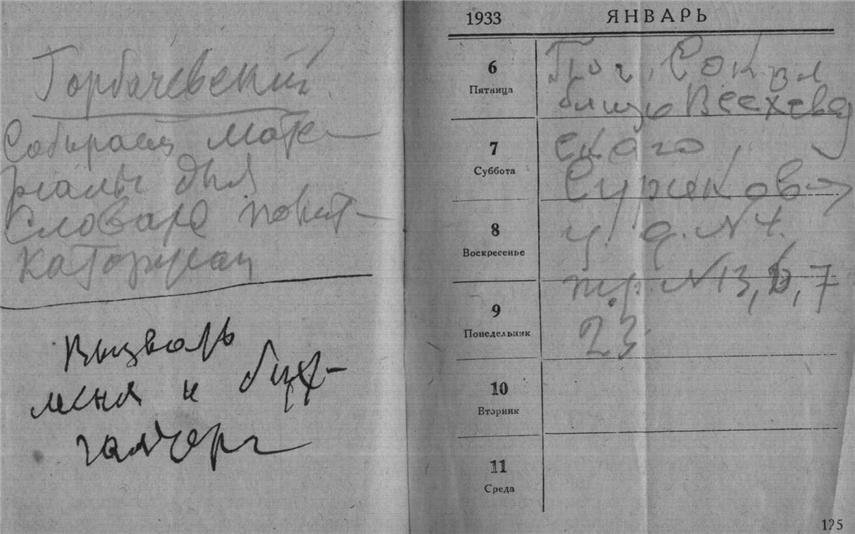 Горбачевский
Собирает мате-
риалы для
словаря полит-
каторжан
Вызвать
меня к бух-
галтеру
1933 ЯНВАРЬ
6
Пятница
7
Суббота
8
Воскресенье
9
Понедельник
10
Вторник
11
Среда
Сокол
близко Всехсвят
ского
д. № 4.
№ 13, 6, 7
23
125